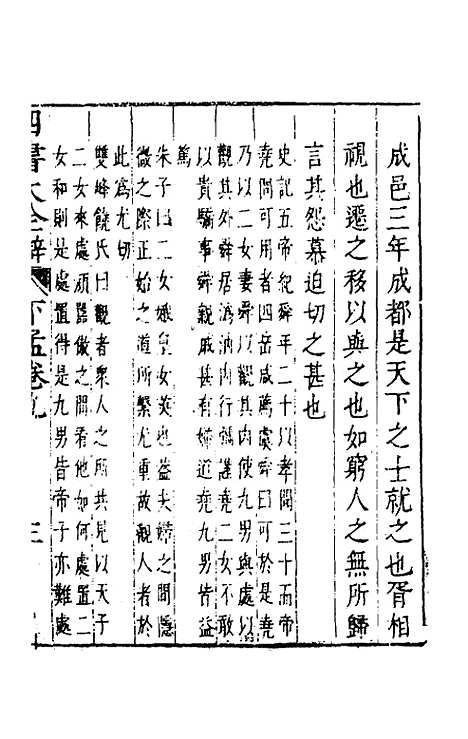 成邑三年成都是天下之士就之也胥相
視也遷之移以與之也如窮人之無所歸
言其怨慕迫切之甚也
史記五帝紀舜年二十以孝聞三十而帝
堯問可用者四岳咸薦虞舜曰可於是堯
乃以二女妻舜以觀其內使九男與處以
觀其外舜居溈汭內行彌謹堯二女不敢
以貴驕事舜親戚甚有婦道堯九男皆益
篤
朱子曰二女娥皇女英也蓋夫婦之間隱
微之際正始之道所繫尤重故觀人者於
此為尤切
雙峰饒氏曰觀者衆人之所共見以天子
二女來處頑嚚傲之間看他如何處置二
女和則是處置得是九男皆帝子亦難處
四書大全辯 下孟卷九 三